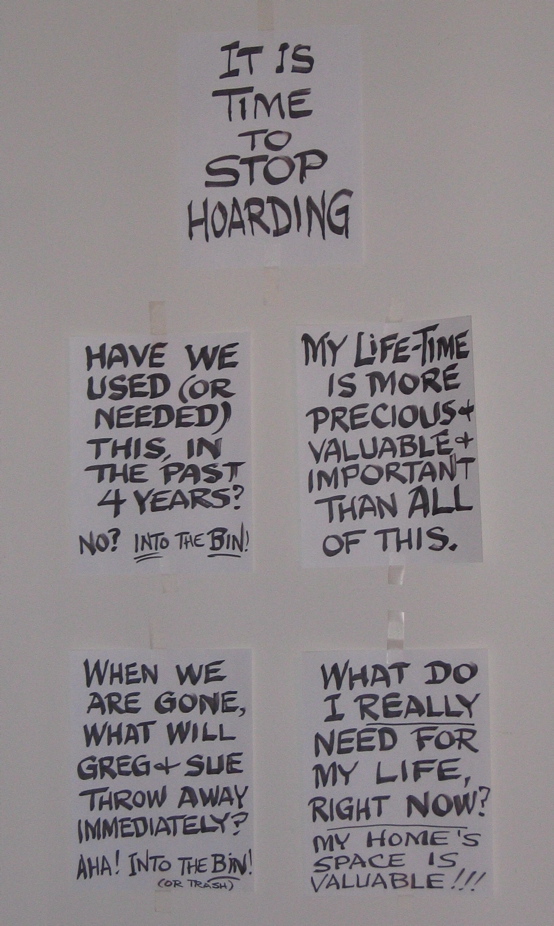 IT IS
TIME
TO
STOP
HOARDING
HAVE WE
USED (OR
NEEDED)
THIS, IN
THE PAST
4 YEARS?
NO? INTO THE BIN!
MY LIFE-TIME
IS MORE
PRECIOUS &
VALUABLE &
IMPORTANT
THAN ALL
OF THIS.
WHEN WE
ARE GONE,
WHAT WILL
GREG & SUE
THROW AWAY
IMMEDIATELY?
AHA! INTO THE BIN!
(OR TRASH)
WHAT DO
I REALLY
NEED FOR
MY LIFE,
RIGHT NOW?
MY HOME'S
SPACE IS
VALUABLE!!!